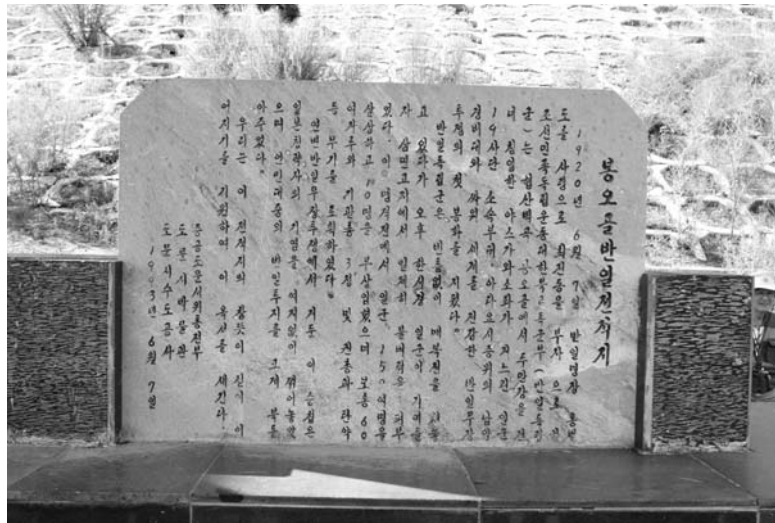 봉오골반일전적지
1920년 6월 7일 반일명장 홍범
도를 사령으로 최진동을 부장으로 한
조선민족독립운동대한북로독군부 (반일독립
군) 는 험산벽곡 봉오골에서 두만강을 건
너 침입한 야스가와소좌가 거느린 일군
19사단 소속부대 시중위의 남양
경비대와 싸워 세계를 진감한 반일무장
투쟁의 첫 봉화를 지폈다.
반일독립군은 빈틈없이 매복진을
고 있다가 오후 한시경 일군이 기여들
자 삼면고지에서 일제히 불벼락을 퍼부
었다. 이 격전에서 일군 150여명을
살상하고 10명을 부상입혔으며 보총 60
여자루와 기관총 3정 및 권총과 탄약
등 무기를 로획하였다.
연변반일무장투쟁에서 거둔 이 승첩은
일본침략자의 기염을 여지없이 꺾어놓았
으며 인민대중의 반일투지를 크게 북돋
아주었다.
우리는 이 전적지의 참뜻이 길이 이
어지기를 기원하여 이 옥석을 세운다.
중공도문시위통전부
도문시박물관
도문시수도공사
1993년 6월 7일